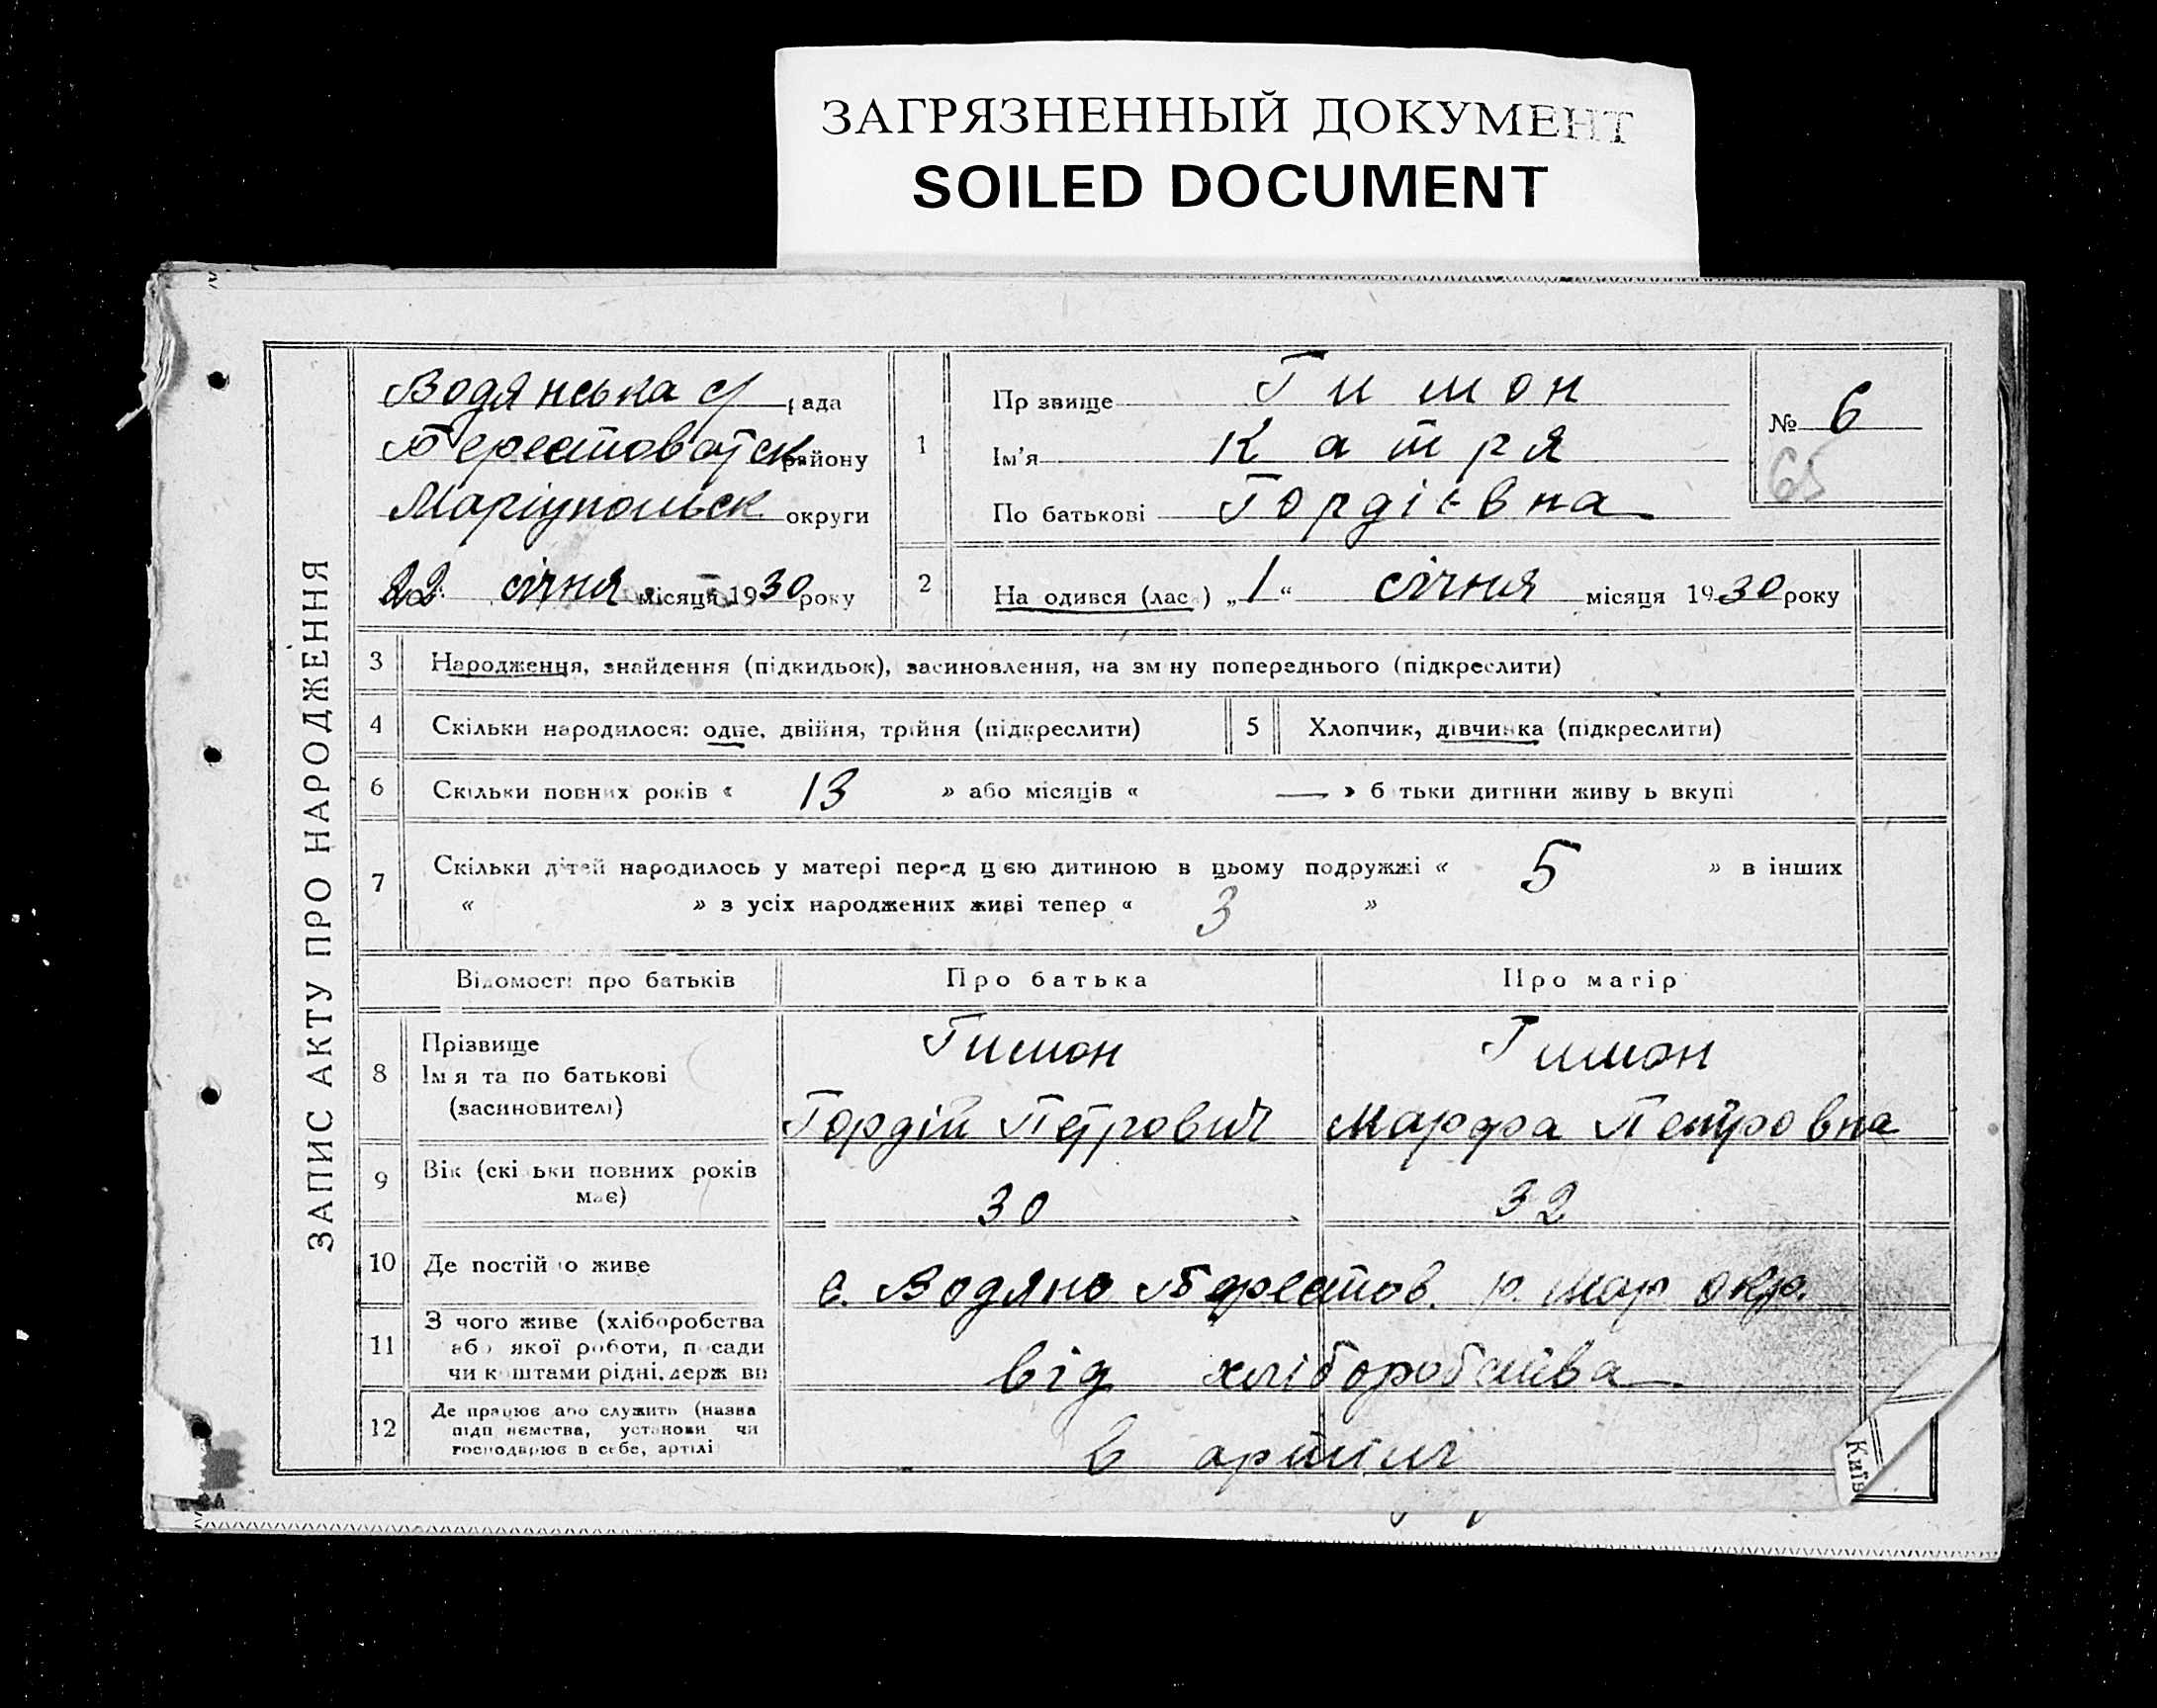 ЗАГРЯЗНЕННЫЙ ДОКУМЕНТ
SOILED DOCUMENT
ЗАПИС АКТУ ПРО НАРОДЖЕННЯ
Водянська с/рада
Берестоватськ району
Маріупольськ округи
22 січня місяця 1930 року
1
Пр звище Гимон
Ім'я Катря
По батькові Гордієвна
№ 6
65
2 На одився (лас ) „1“ січня місяця 1930 року
3 Народження, знайдення (підкидьок), засиновлення, на зм ну попереднього (підкреслити)
4 Скільки народилося: одне, двійня, трійня (підкреслити)
5 Хлопчик, дівчинка (підкреслити)
6 Скільки повних років « 13 » або місяців « — » б тьки дитини живу ь вкупі
7 Скільки дітей народилось у матері перед цією дитиною в цьому подружжі « 5 » в інших
« » з усіх народжених живі тепер « 3 »
Відомості про батьків Про батька Про матір
8 Прізвище Гимон Гимон
Ім я та по батькові
(засиновителі) Гордій Петрович Марфа Петровна
9 Вік (скі ьки повних років
має) 30 32
10 Де постій о живе с. Водяно Берестов. р. Мар. окр.
11 З чого живе (хліборобства
або якої роботи, посади
чи к штами рідні, держ ви від хліборобства
12 Де працює або служить (назва
підп иємства, установи чи
господарює в себе, артілі в артілі
Київ